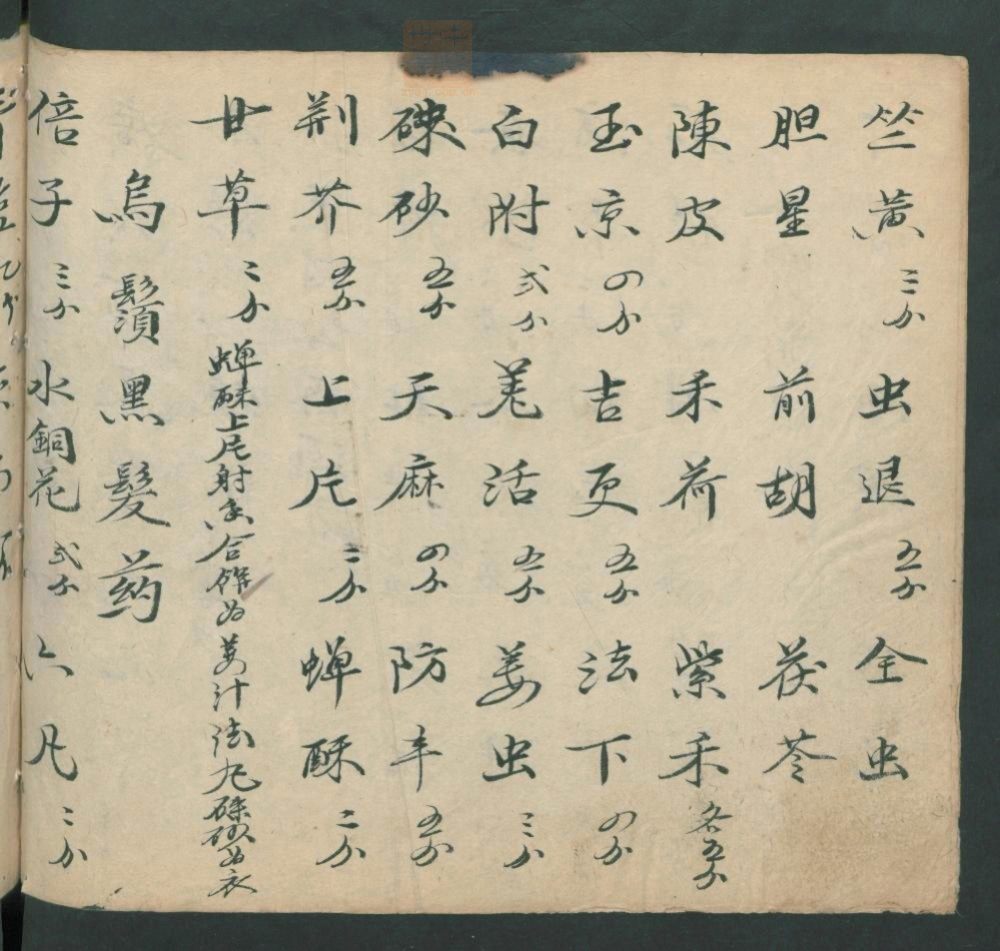 竺黃三分 虫退五分 全虫
胆星 前胡 茯苓
陳皮 禾荷 紫禾各五分
玉京四分 吉更五分 法下四分
白附弍分 羌活五分 姜虫三分
硃砂五分 天麻四分 防丰五分
荆芥五分 上片二分 蝉酥二分
甘草二分 蝉酥上片射香合 为姜汁法丸硃砂为衣
烏鬚黑髮药
倍子三分 水銅花弍分 六凡二分